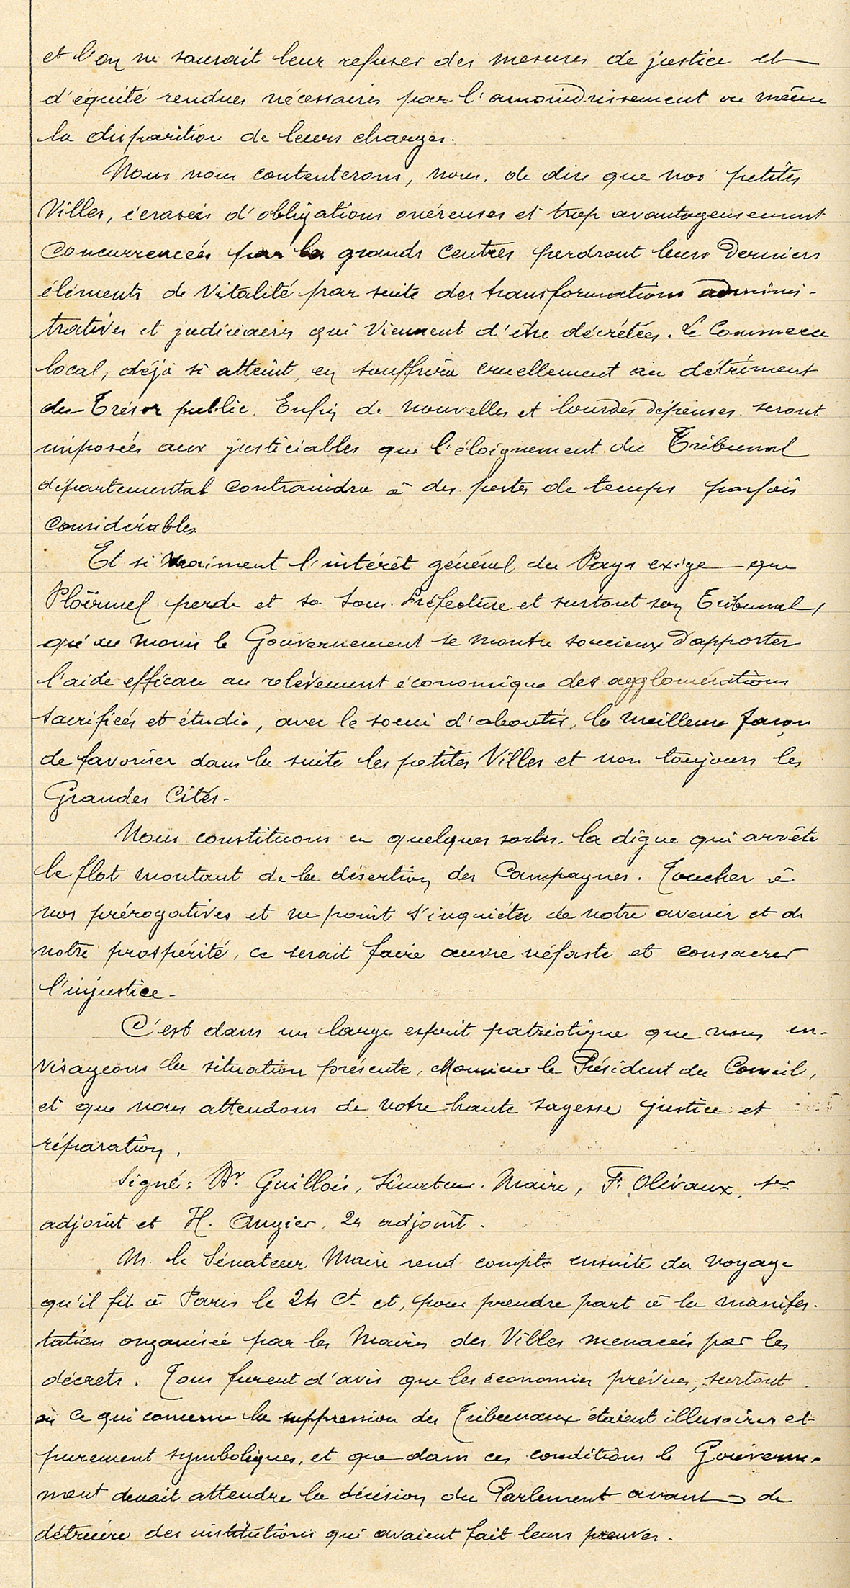 et l'on ne saurait leur refuser des mesures de justice et
d'équité rendues nécessaires par l'amoindrissement ou même
la disparition de leurs charges.
Nous nous contenterons, nous, de dire que nos petites
Villes, écrasées d'obligations onéreuses et trop avantageusement
concurrencées par les grands centres perdront leurs derniers
éléments de Vitalité par suite des transformations adminis-
tratives et judiciaires qui viennent d'être décrétées. Le Commerce
local, déjà si atteint, en souffrira cruellement au détriment
du Trésor public. Enfin de nouvelles et lourdes dépenses seront
imposées aux justiciables que l'éloignement du Tribunal
départemental contraindra à des pertes de temps parfois
considérables.
Et si vraiment l'intérêt général du Pays exige que
Ploërmel perde et sa Sous Préfecture et surtout son Tribunal,
qu'au moins le Gouvernement se montre soucieux d'apporter
l'aide efficace au relèvement économique des agglomérations
sacrifiées et étudie, avec le souci d'aboutir, la meilleure façon
de favoriser dans la suite les petites Villes et non toujours les
Grandes Cités.
Nous constituons en quelques sortes la digue qui arrête
le flot montant de la désertion des Campagnes. Toucher à
nos prérogatives et ne point s'inquiéter de notre avenir et de
notre prospérité, ce serait faire œuvre néfaste et consacrer
l'injustice.
C'est dans un large esprit patriotique que nous en-
visageons la situation présente, Monsieur le Président du Conseil,
et que nous attendons de votre haute sagesse justice et
réparation.
Signé: Dr Guillois, Sénateur-Maire, F. Olivaux, 1er
adjoint et H. Angier, 2e adjoint.
M. le Sénateur Maire rend compte ensuite du voyage
qu'il fit à Paris le 24 Ct et, pour prendre part à la manifes-
tation organisée par les Maires des Villes menacées par les
décrets. Tous furent d'avis que les économies prévues, surtout
en ce qui concerne la suppression des Tribunaux étaient illusoires et
purement symboliques, et que dans ces conditions le Gouverne-
ment devait attendre la décision du Parlement avant de
détruire des institutions qui avaient fait leurs preuves.